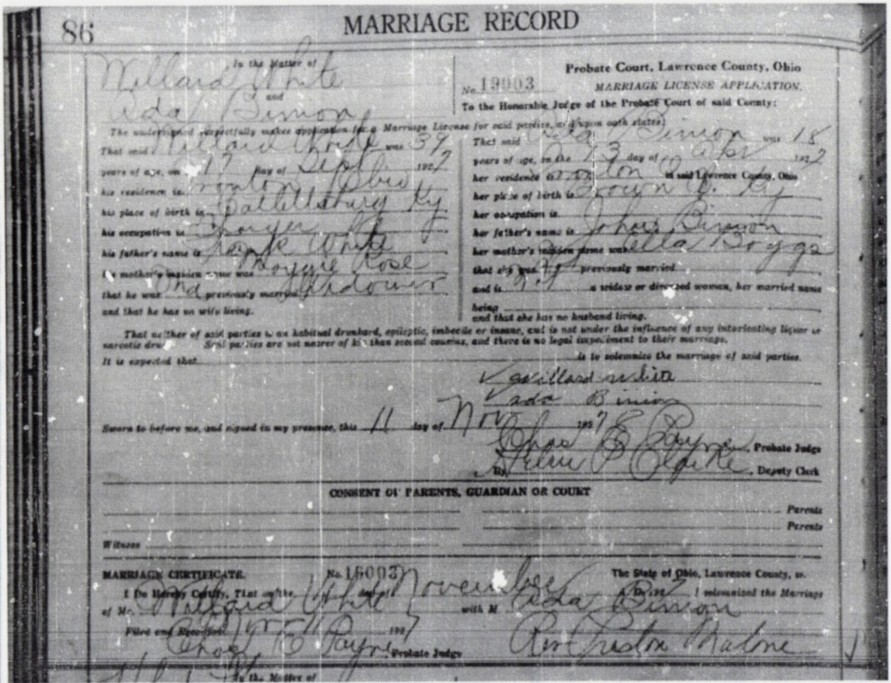 86
MARRIAGE RECORD
In the Matter of
Willard White
and
Ada Binion
No. 19003
Probate Court, Lawrence County, Ohio
MARRIAGE LICENSE APPLICATION.
To the Honorable Judge of the Probate Court of said County:
The undersigned respectfully makes application for a Marriage License for said parties, and upon oath states:
That said Willard White was 39
years of age, on the 17 day of Sept 1927
his residence is Ironton Ohio
his place of birth is Catlettsburg Ky
his occupation is
his father's name is Frank White
his mother's maiden name was Rose
that he was previously married Widower
and that he has no wife living.
That said Ada Binion was 18
years of age, on the 13 day of Apr 1927
her residence is Ironton O in said Lawrence County, Ohio
her place of birth is Ky
her occupation is
her father's name is John Binion
her mother's maiden name was Ella Boggs
that she was previously married
and is a widow or divorced woman, her married name
being
and that she has no husband living.
That neither of said parties is an habitual drunkard, epileptic, imbecile or insane, and is not under the influence of any intoxicating liquor or
narcotic drug. Said parties are not nearer of kin than second cousins, and there is no legal impediment to their marriage.
It is expected that is to solemnize the marriage of said parties.
Willard white
ada Binion
Sworn to before me, and signed in my presence, this 11 day of Nov 1927
Chas E Payne, Probate Judge
By Clarke, Deputy Clerk
CONSENT OF PARENTS, GUARDIAN OR COURT
Parents
Parents
Witness
MARRIAGE CERTIFICATE. No. The State of Ohio, Lawrence County, ss.
I Do Hereby Certify, That on the day of November I solemnized the Marriage
of Mr. Willard White with M Ada Binion
Filed and Recorded 1927
Chas E Payne, Probate Judge
Rev Preston Malone
In the Matter of